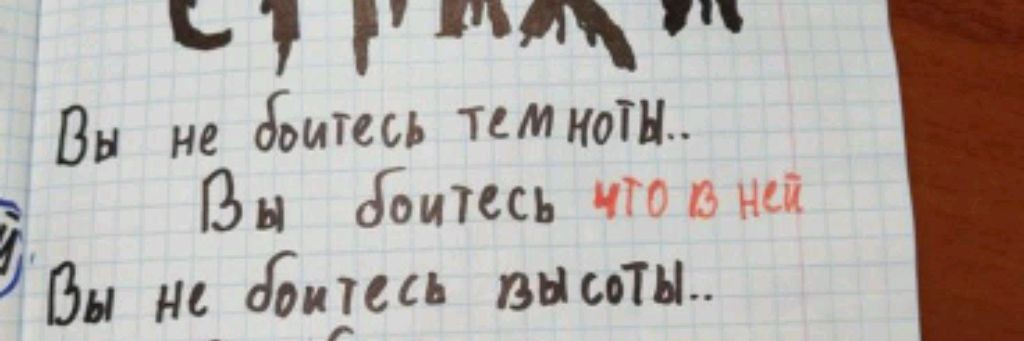 Вы не боитесь темноты..
Вы боитесь что в ней
Вы не боитесь высоты..